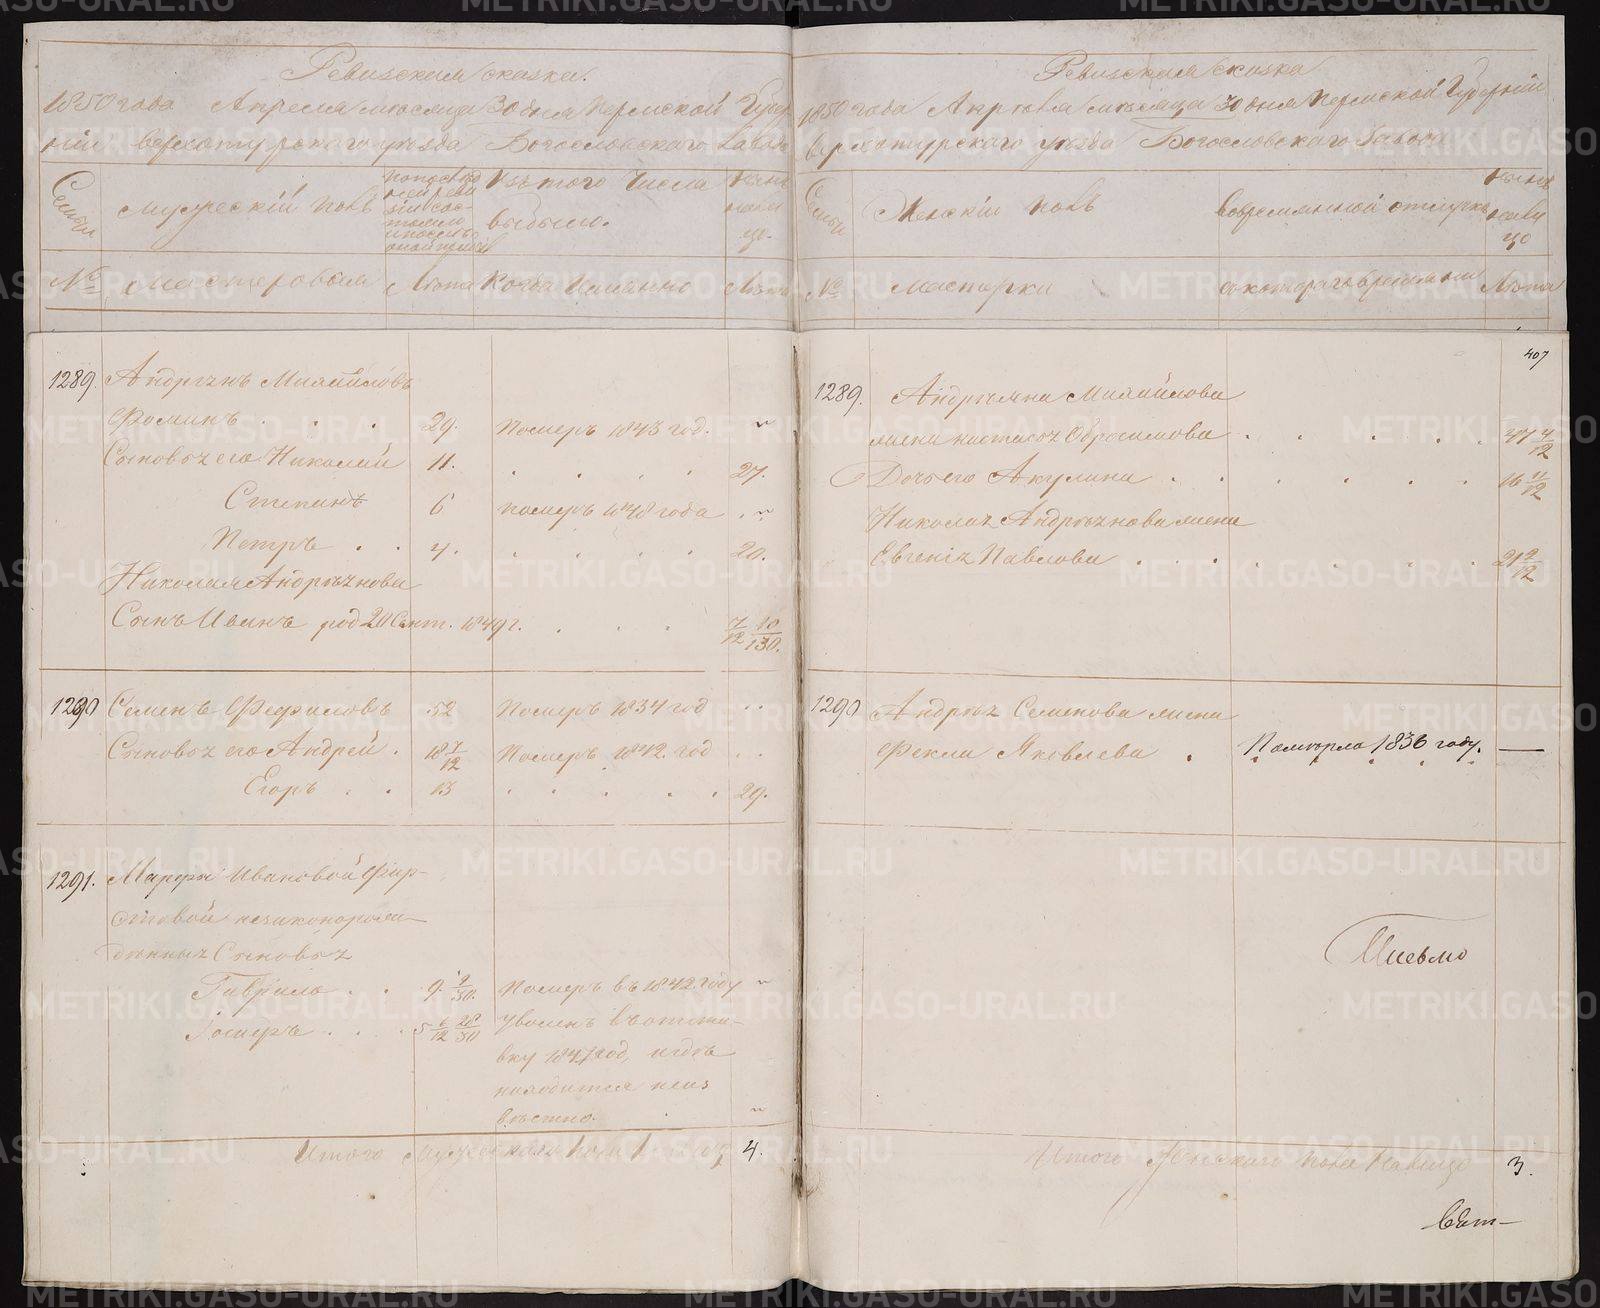 Ревизская сказка.
1850 года Апреля месяца 30 дня Пермской Губер
ніи верхотурскаго уезда Богословскаго Завода
Семьи
Мужескій полъ
по послед
ней реви
зіи сос-
тояло
и после
Изъ того числа
выбыло.
Ныне
на ли
цо.
№ Мастеровыя Лета Когда Именно Лета
1289. Андреянъ Михайловъ
Фоминъ . . . 29. Померъ 1843 год. "
Сыновья его Николай 11. . . . . 27.
Степанъ 6 померъ 1848 года . "
Петръ . . 4. . . . . 20.
Николая Андреянова
Сынъ Иванъ род 20 Сент. 1849 г. . . . 7/12 10/30.
1290 Семенъ Фефиловъ 52 Померъ 1834 год . .
Сыновья его Андрей . 18 7/12 Померъ 1842 год . .
Егоръ . . 13 . . . . . 29.
1291. Марфы Ивановой Фир-
совой незаконорож-
денных Сыновья
Гаврило . . 9. 9/30. Померъ въ 1842 году "
5 6/12 28/30 Уволенъ в отста-
вку 1847 год, и где
находится неиз
вестно. "
Итого Мужескаго пола налицо 4.
Ревизская сказка
1850 года Апреля месяца 30 дня Пермской Губерніи
верхотурскаго уезда Богословскаго Завода
Семьи
Женскій полъ
вовремянной отлучке
Ныне
на ли
цо
№ Мастерки скотораго времяни Лета
407
1289. Андреяна Михайлова
жена настасья Обросимова . . . . . . 47 4/12
Дочь его Акулина . . . . . . 16 11/12
Николая Андреянова жена
Евгенія Павлова . . . . . . 21 2/12
1290 Андрея Семенова жена
Фекла Яковлева . Померла 1836 году. —
Письмо
Итого Женскаго пола Налицо 3.
METRIKI.GASO-URAL.RU